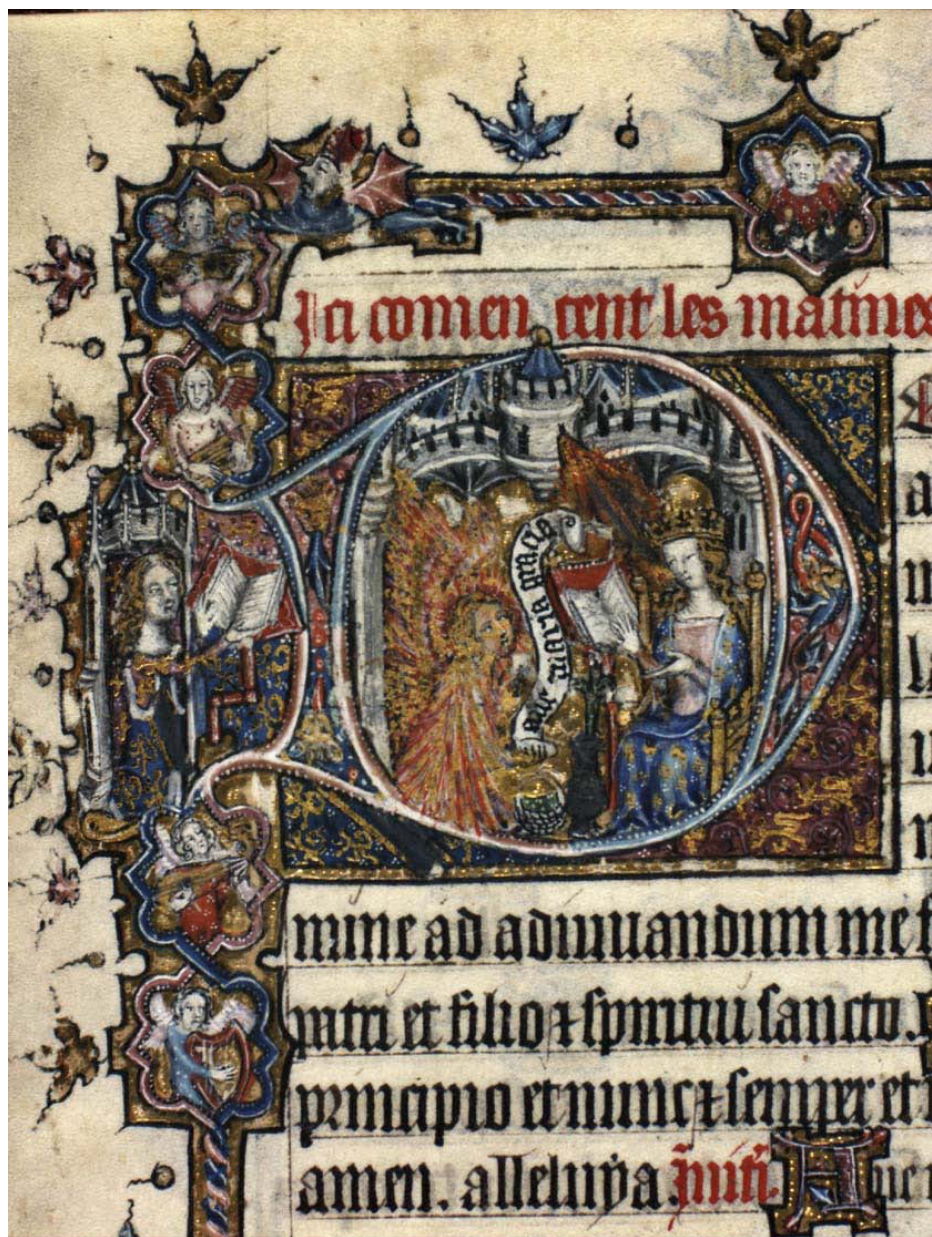 Ici comen cent les matines
Aue maria gracia
mine ad adiuuandum me f
patri et filio ⁊ spiritui sancto.
principio et nunc ⁊ semper et
amen. alleluya